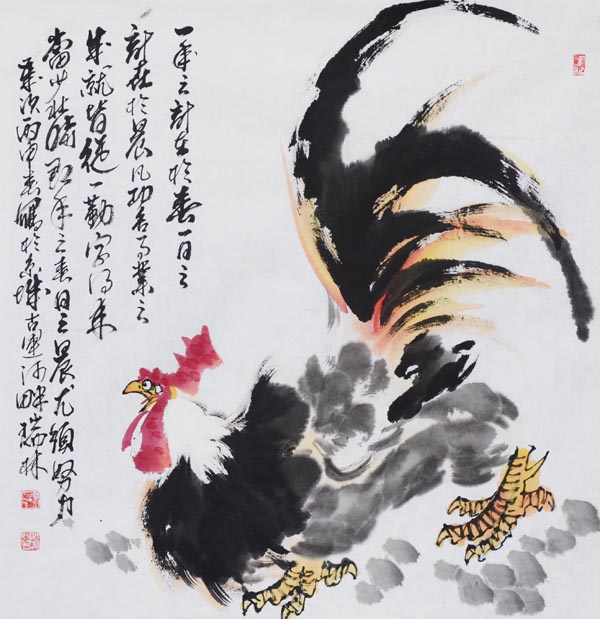 一年之計在於春一日之
計在於晨凡功名事業之
成就皆從一勤字得來
當少壯時年之春日之晨尤須努力
歲次丙申春於京城古運河畔瑞林